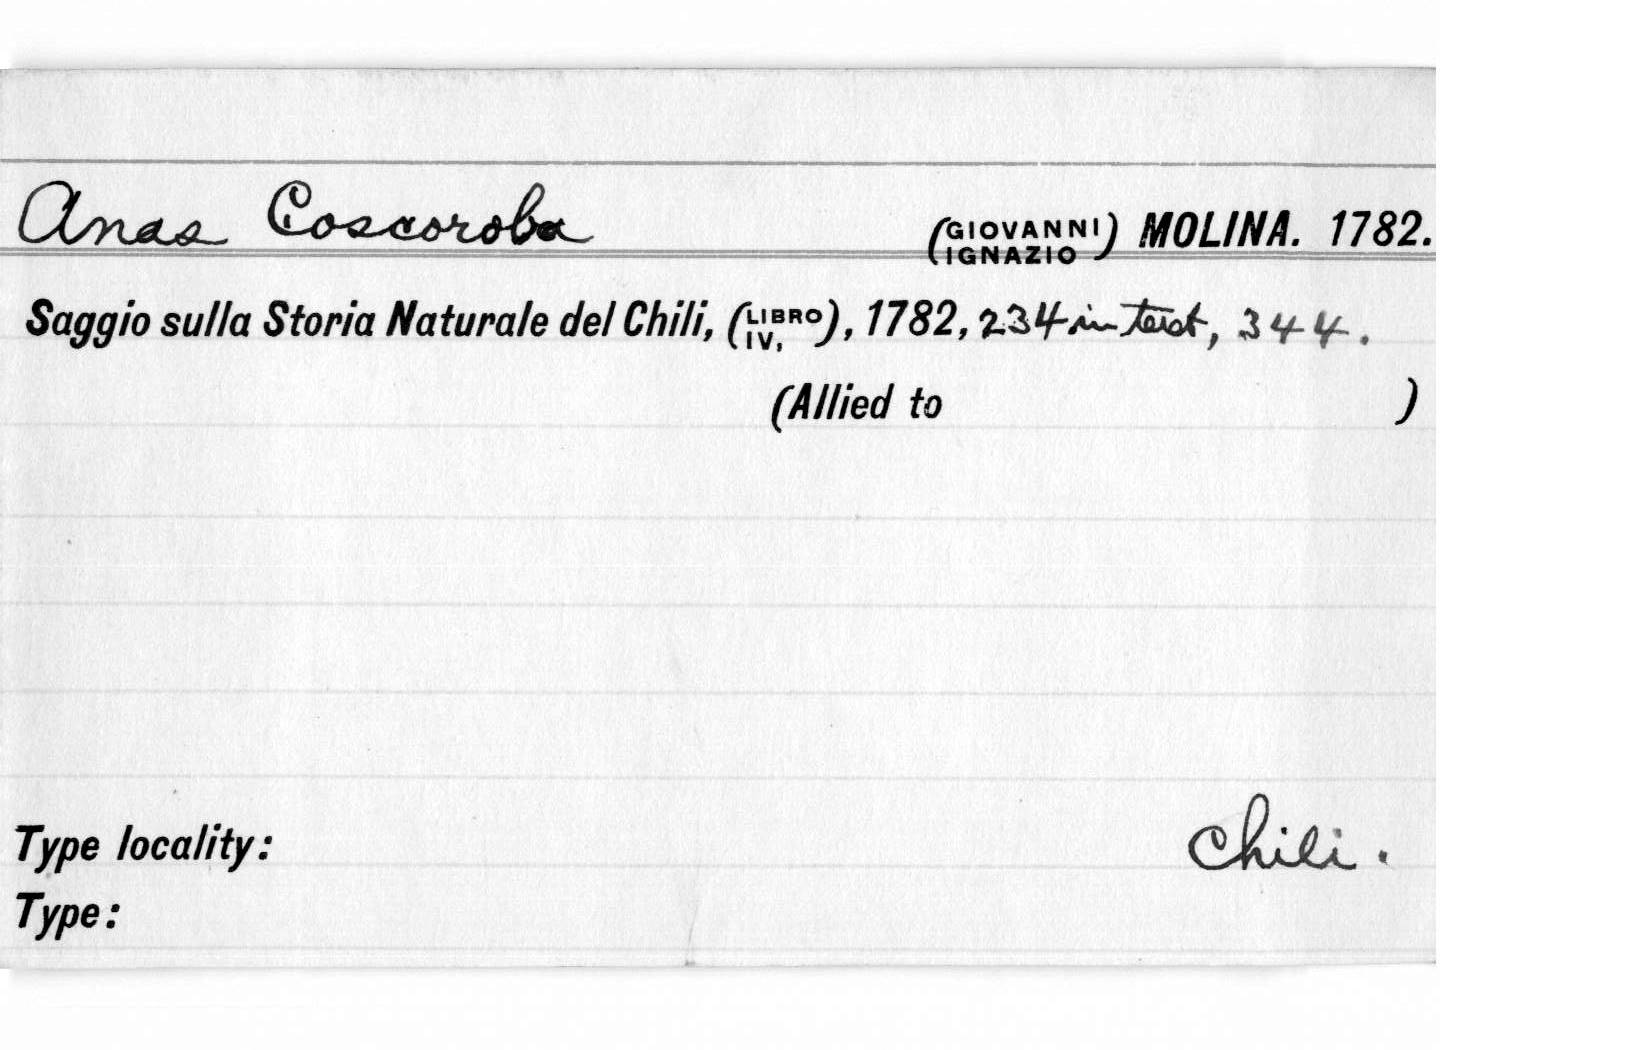 Anas Coscoroba (GIOVANNI IGNAZIO) MOLINA. 1782.
Saggio sulla Storia Naturale del Chili, (LIBRO IV,), 1782, 234 in text, 344.
(Allied to )
Type locality: Chili.
Type: